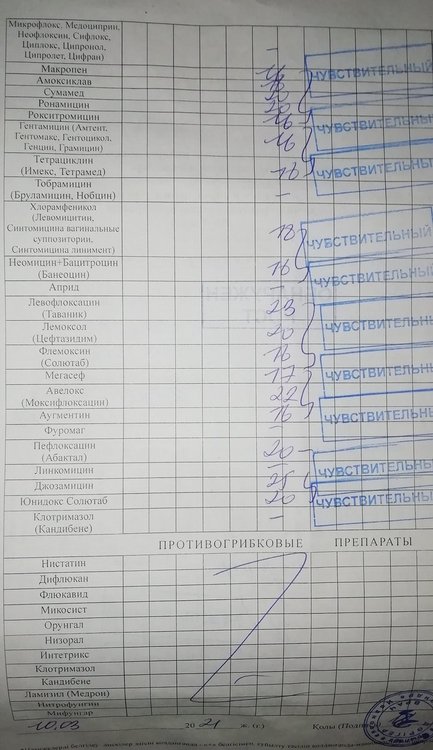 Микрофлокс, Медоциприн,
Неофлоксин, Сифлокс,
Циплокс, Ципронол,
Ципролет, Цифран) -
Макропен 16 ЧУВСТВИТЕЛЬНЫЙ
Амоксиклав
Сумамед
Ронамицин 20
Рокситромицин 16 ЧУВСТВИТЕЛЬНЫЙ
Гентамицин (Амтент,
Гентомакс, Гентоцикол, 16
Генцин, Грамицин)
Тетрациклин ЧУВСТВИТЕЛЬНЫЙ
(Имекс, Тетрамед)
Тобрамицин -
(Бруламицин, Нобцин)
Хлорамфеникол
(Левомицитин, 18
Синтомицина вагинальные ЧУВСТВИТЕЛЬНЫЙ
суппозитории,
Синтомицина линимент)
Неомицин+Бацитроцин 16
(Банеоцин) ЧУВСТВИТЕЛЬНЫЙ
Априд -
Левофлоксацин 23
(Таваник) ЧУВСТВИТЕЛЬНЫ
Лемоксол 20
(Цефтазидим)
Флемоксин
(Солютаб) ЧУВСТВИТЕЛЬНЫ
Мегасеф 17
Авелокс 22
(Моксифлоксацин)
Аугментин 16 ЧУВСТВИТЕЛЬНЫ
Фуромаг -
Пефлоксацин 20
(Абактал)
Линкомицин - ЧУВСТВИТЕЛЬНЫ
Джозамицин 25
Юнидокс Солютаб 20 ЧУВСТВИТЕЛЬНЫ
Клотримазол -
(Кандибене)
ПРОТИВОГРИБКОВЫЕ ПРЕПАРАТЫ
Нистатин
Дифлюкан
Флюкавид
Микосист
Орунгал
Низорал
Интетрикс
Клотримазол
Кандибене
Ламизил (Медрон)
Нитрофунгин
Мифунгар
10.03 2021 ж. (г.) Қолы (Подпи